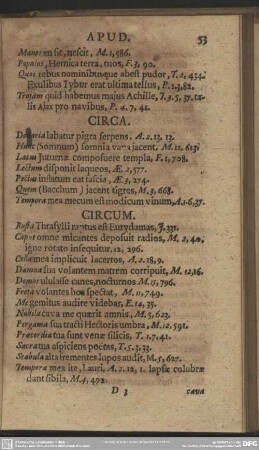 APUD. 53
Manus an sit, nescit, M. 1, 586.
Populus, Hernica terra, tuos, F. 3, 90.
Quos rebus nominibusque abest pudor, T. 2, 434.
Exulibus Tybur erat ultima tellus, P. 1. 3, 82.
Trojam quid habemus majus Achille, T. 3. 5, 37. ta-
lis Ajax pro navibus, P. 4. 7, 41.
CIRCA.
labatur pigra serpens, A. 2. 13, 13.
Hunc (Somnum) somnia vana jacent, M. 11, 613.
Latum Juturnæ composuere templa, F. 1, 708.
Lectum disponit laqueos, Æ. 2, 577.
Pectus inflatum eat fascia, Æ. 3, 274.
Quem (Bacchum) jacent tigres, M. 3, 668.
Tempora mea mecum est modicum vinum, A. 1. 6, 37.
CIRCUM.
Busta Thrasylli raptus est Eurydamas, J. 331.
Caput omne micantes deposuit radios, M. 2, 40.
igne rotato insequitur, 12, 296.
Colla mea implicuit lacertos, A. 2. 18, 9.
Damna sua volantem matrem corripuit, M. 12, 16.
Domos ululasse canes, nocturnos M. 15, 796.
Freta volantes hos spectat, M. 11, 749.
Me gemitus audire videbar, E. 14, 35.
Nubila cava me quærit amnis, M. 5, 623.
Pergama sua tracti Hectoris umbra, M. 12. 591.
Præcordia tua sunt venæ silicis, T. 1. 7, 41.
Sacra tua aspiciens poetas, T. 5. 3, 33.
Stabula alta frementes lupos audit, M. 5, 627.
Tempora mea ite, Lauri, A. 2. 12, 1. lapsæ colubræ
dant sibila, M. 4, 492.
D 3 cava
DFG